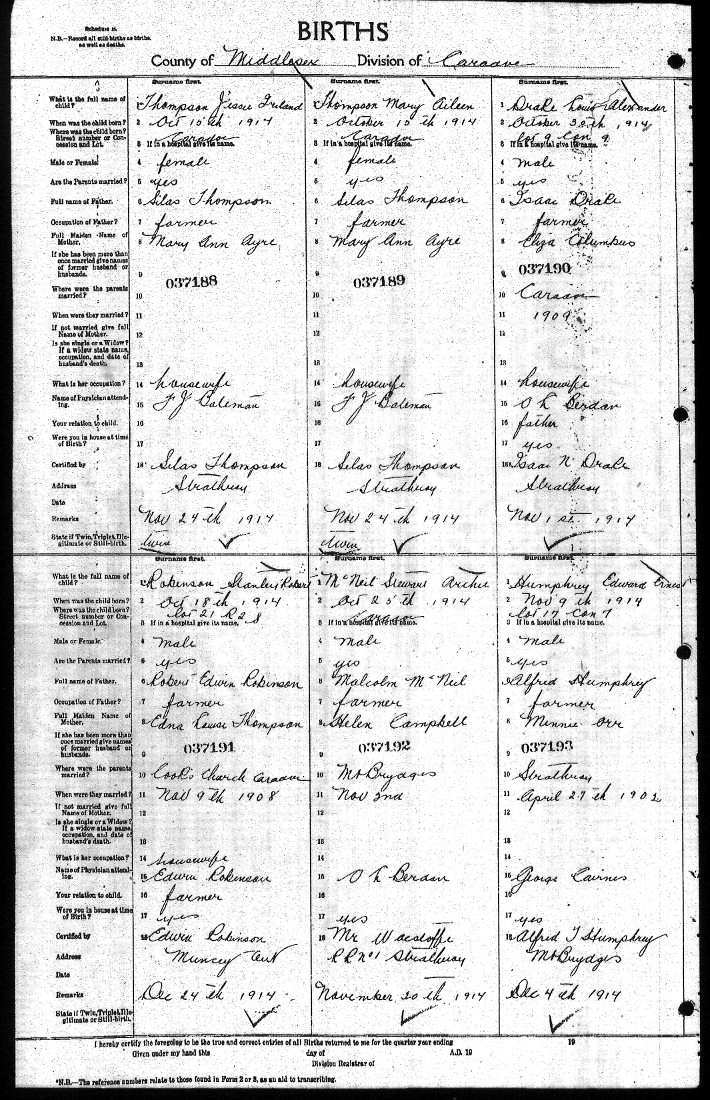 Schedule B.
N.B.—Record all still births as births, as well as deaths.
BIRTHS
County of Middlesex Division of Caradoc
Surname first. Surname first. Surname first.
What is the full name of child? Thompson Jessie Ireland 
Thompson Mary Aileen
1 Drake Louis Alexander
When was the child born? 2 Oct 15th 1914
2 October 15th 1914
2 October 30th, 1914
Where was the child born? Street number or Concession and Lot. Caradoc
Caradoc
Lot 9 Con 9
3 If in a hospital give its name.
3 If in a hospital give its name.
3 If in a hospital give its name.
Male or Female? 4 female
4 female
4 male
Are the Parents married? 5 yes
5 yes
5 yes
Full name of Father. 6 Silas Thompson
6 Silas Thompson
6 Isaac Drake
Occupation of Father? 7 farmer
7 farmer
7 farmer
Full Maiden Name of Mother. 8 Mary Ann Ayre
8 Mary Ann Ayre
8 Eliza Columbus
If she has been more than once married give names of former husband or husbands. 9 037188
9 037189
9 037190
Where were the parents married? 10
10
10 Caradoc
When were they married? 11
11
11 1909
If not married give full Name of Mother. 12
12
12
Is she single or a Widow? If a widow state name, occupation, and date of husband's death. 13
13
13
What is her occupation? 14 housewife
14 housewife
14 housewife
Name of Physician attending. 15 F J Bateman
15 F J Bateman
15 O L Berdan
Your relation to child. 16
16
16 father
Were you in house at time of Birth? 17
17
17 yes
Certified by 18 Silas Thompson
18 Silas Thompson
18 Isaac N Drake
Address Strathroy
Strathroy
Strathroy
Date
Remarks Nov 24th 1914
Nov 24th 1914
Nov 1st 1914
State if Twin, Triplet, Illegitimate or Still-birth. twin
twin
Surname first. Surname first. Surname first.
What is the full name of child? Robinson Stanley Robert
1 McNeil Stewart Archie
1 Humphrey Edward Ernest
When was the child born? 2 Oct 18th 1914
2 Oct 25th 1914
2 Nov 9th 1914
Where was the child born? Street number or Concession and Lot. Lot 21 R 2 S
Caradoc
Lot 17 Con 7
3 If in a hospital give its name.
3 If in a hospital give its name.
3 If in a hospital give its name.
Male or Female? 4 male
4 male
4 male
Are the Parents married? 5 yes
yes
5 yes
Full name of Father. 6 Robert Edwin Robinson
6 Malcolm McNeil
6 Alfred Humphrey
Occupation of Father? 7 farmer
7 farmer
7 farmer
Full Maiden Name of Mother. 8 Edna Louise Thompson
8 Helen Campbell
8 Minnie Orr
If she has been more than once married give names of former husband or husbands. 9 037191
9 037192
9 037193
Where were the parents married? 10 Cook's Church Caradoc
10 Mt Brydges
10 Strathroy
When were they married? 11 Nov 9th 1908
11 Nov 2nd
11 April 27th
If not married give full Name of Mother. 12
12
12
Is she single or a Widow? If a widow state name, occupation, and date of husband's death. 13
13
13
What is her occupation? 14 housewife
14
14
Name of Physician attending. 15 Edwin Robinson
15 O L Berdan
15 George Cairnes
Your relation to child. 16 farmer
16
16
Were you in house at time of Birth? 17 yes
17 yes
17 yes
Certified by 18 Edwin Robinson
18 Mr
18 Alfred T Humphrey
Address Muncey Ont
R R No 1 Strathroy
Mt Brydges
Date
Remarks Dec 24th 1914
November 30th, 1914
Dec 4th 1914
State if Twin, Triplet, Illegitimate or Still-birth.
I hereby certify the foregoing to be the true and correct entries of all Births returned to me for the quarter year ending 19
Given under my hand this day of A.D. 19
Division Registrar of
*N.B.—The reference numbers relate to those found in Form 2 or 3, as an aid to transcribing.